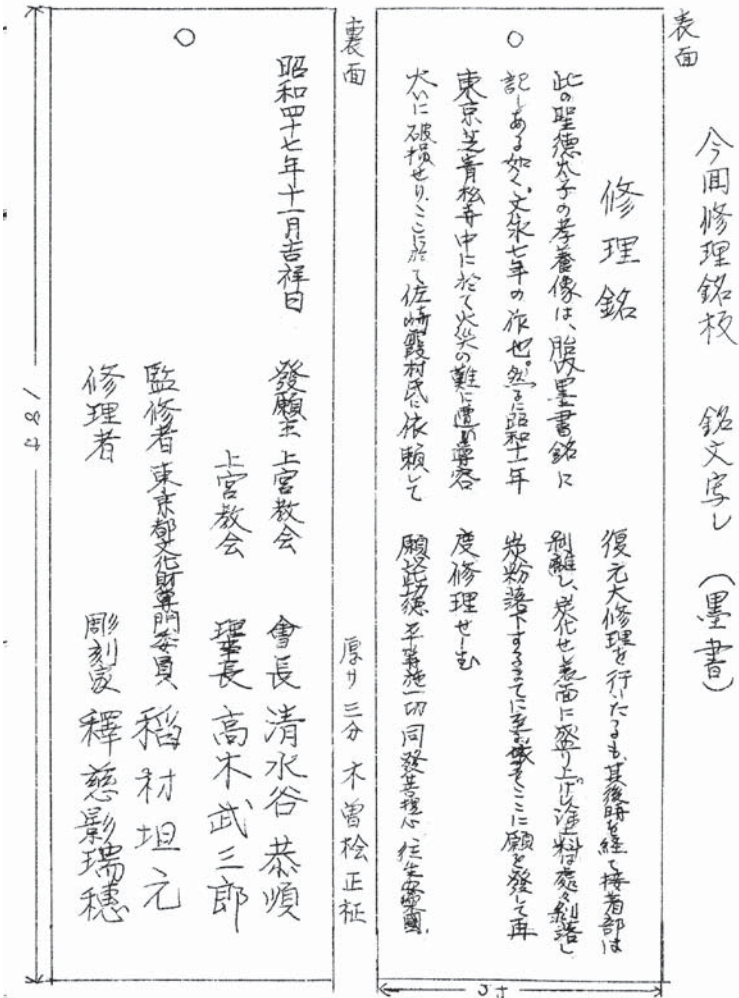 今回修理銘板　銘文写し　(墨書)
表面
修理銘
此の聖徳太子の孝養像は、胎内墨書銘に
記しある如く、文永七年の作也。然るに昭和十一年
東京芝青松寺中に於て火災の難に遭い尊容
大いに破損せり、ここに於て佐崎霞村氏に依頼して
復元大修理を行いたるも、其後時を経て接着部は
剥離し、炭化せし表面に盛り上げし塗料は處々剝落し
炭粉落下するまでに至る ここに願を發して再
度修理せしむ
願以此功徳 平等施一切 同發菩提心 往生安樂國
厚サ三分 木曽桧正柾
裏面
昭和四十七年十一月吉祥日
發願主 上宮教会 會長 清水谷恭順
上宮教会 理事長 高木武三郎
監修者 東京都文化財専門委員 稲村坦元
修理者 彫刻家 釋慈影瑞穂